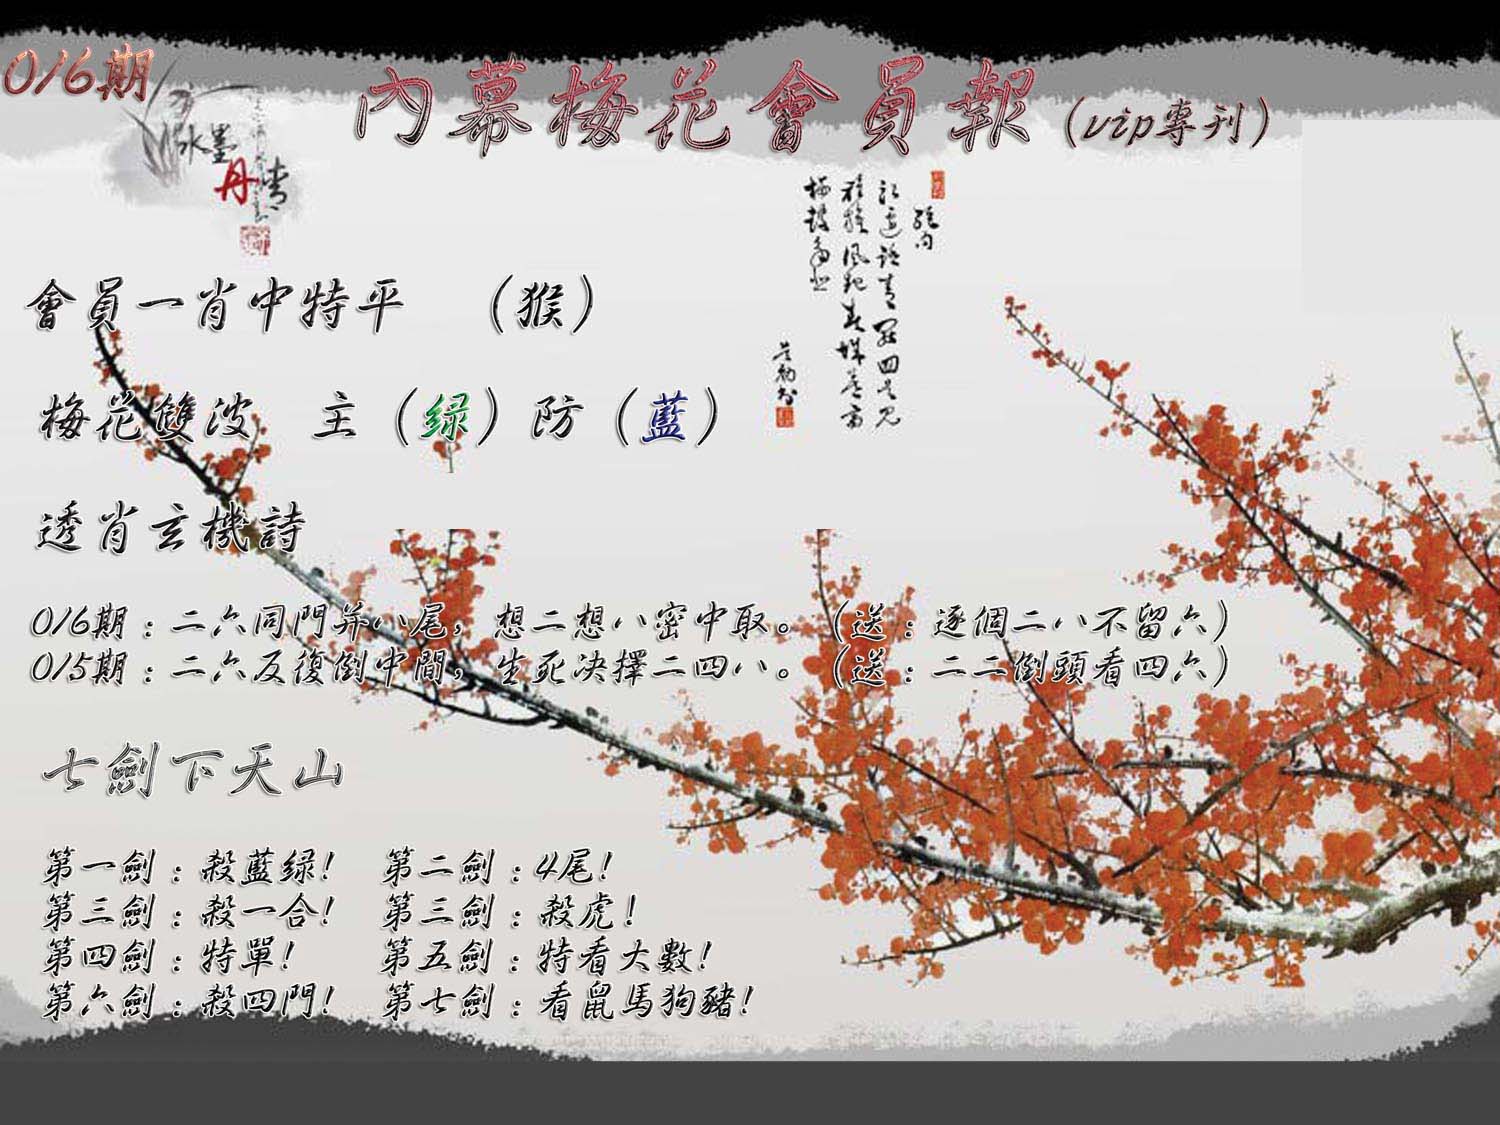 016期
內幕梅花會員報（vip專刊）
水墨
丹青
會員一肖中特平 （猴）
梅花雙波 主（绿）防（藍）
透肖玄機詩
016期：二六同門并八尾，想二想八密中取。（送：逐個二八不留六）
015期：二六反復倒中間，生死决擇二四八。（送：二二倒頭看四六）
七劍下天山
第一劍：殺藍绿！ 第二劍：4尾！
第三劍：殺一合！ 第三劍：殺虎！
第四劍：特單！ 第五劍：特看大數！
第六劍：殺四門！ 第七劍：看鼠馬狗豬！